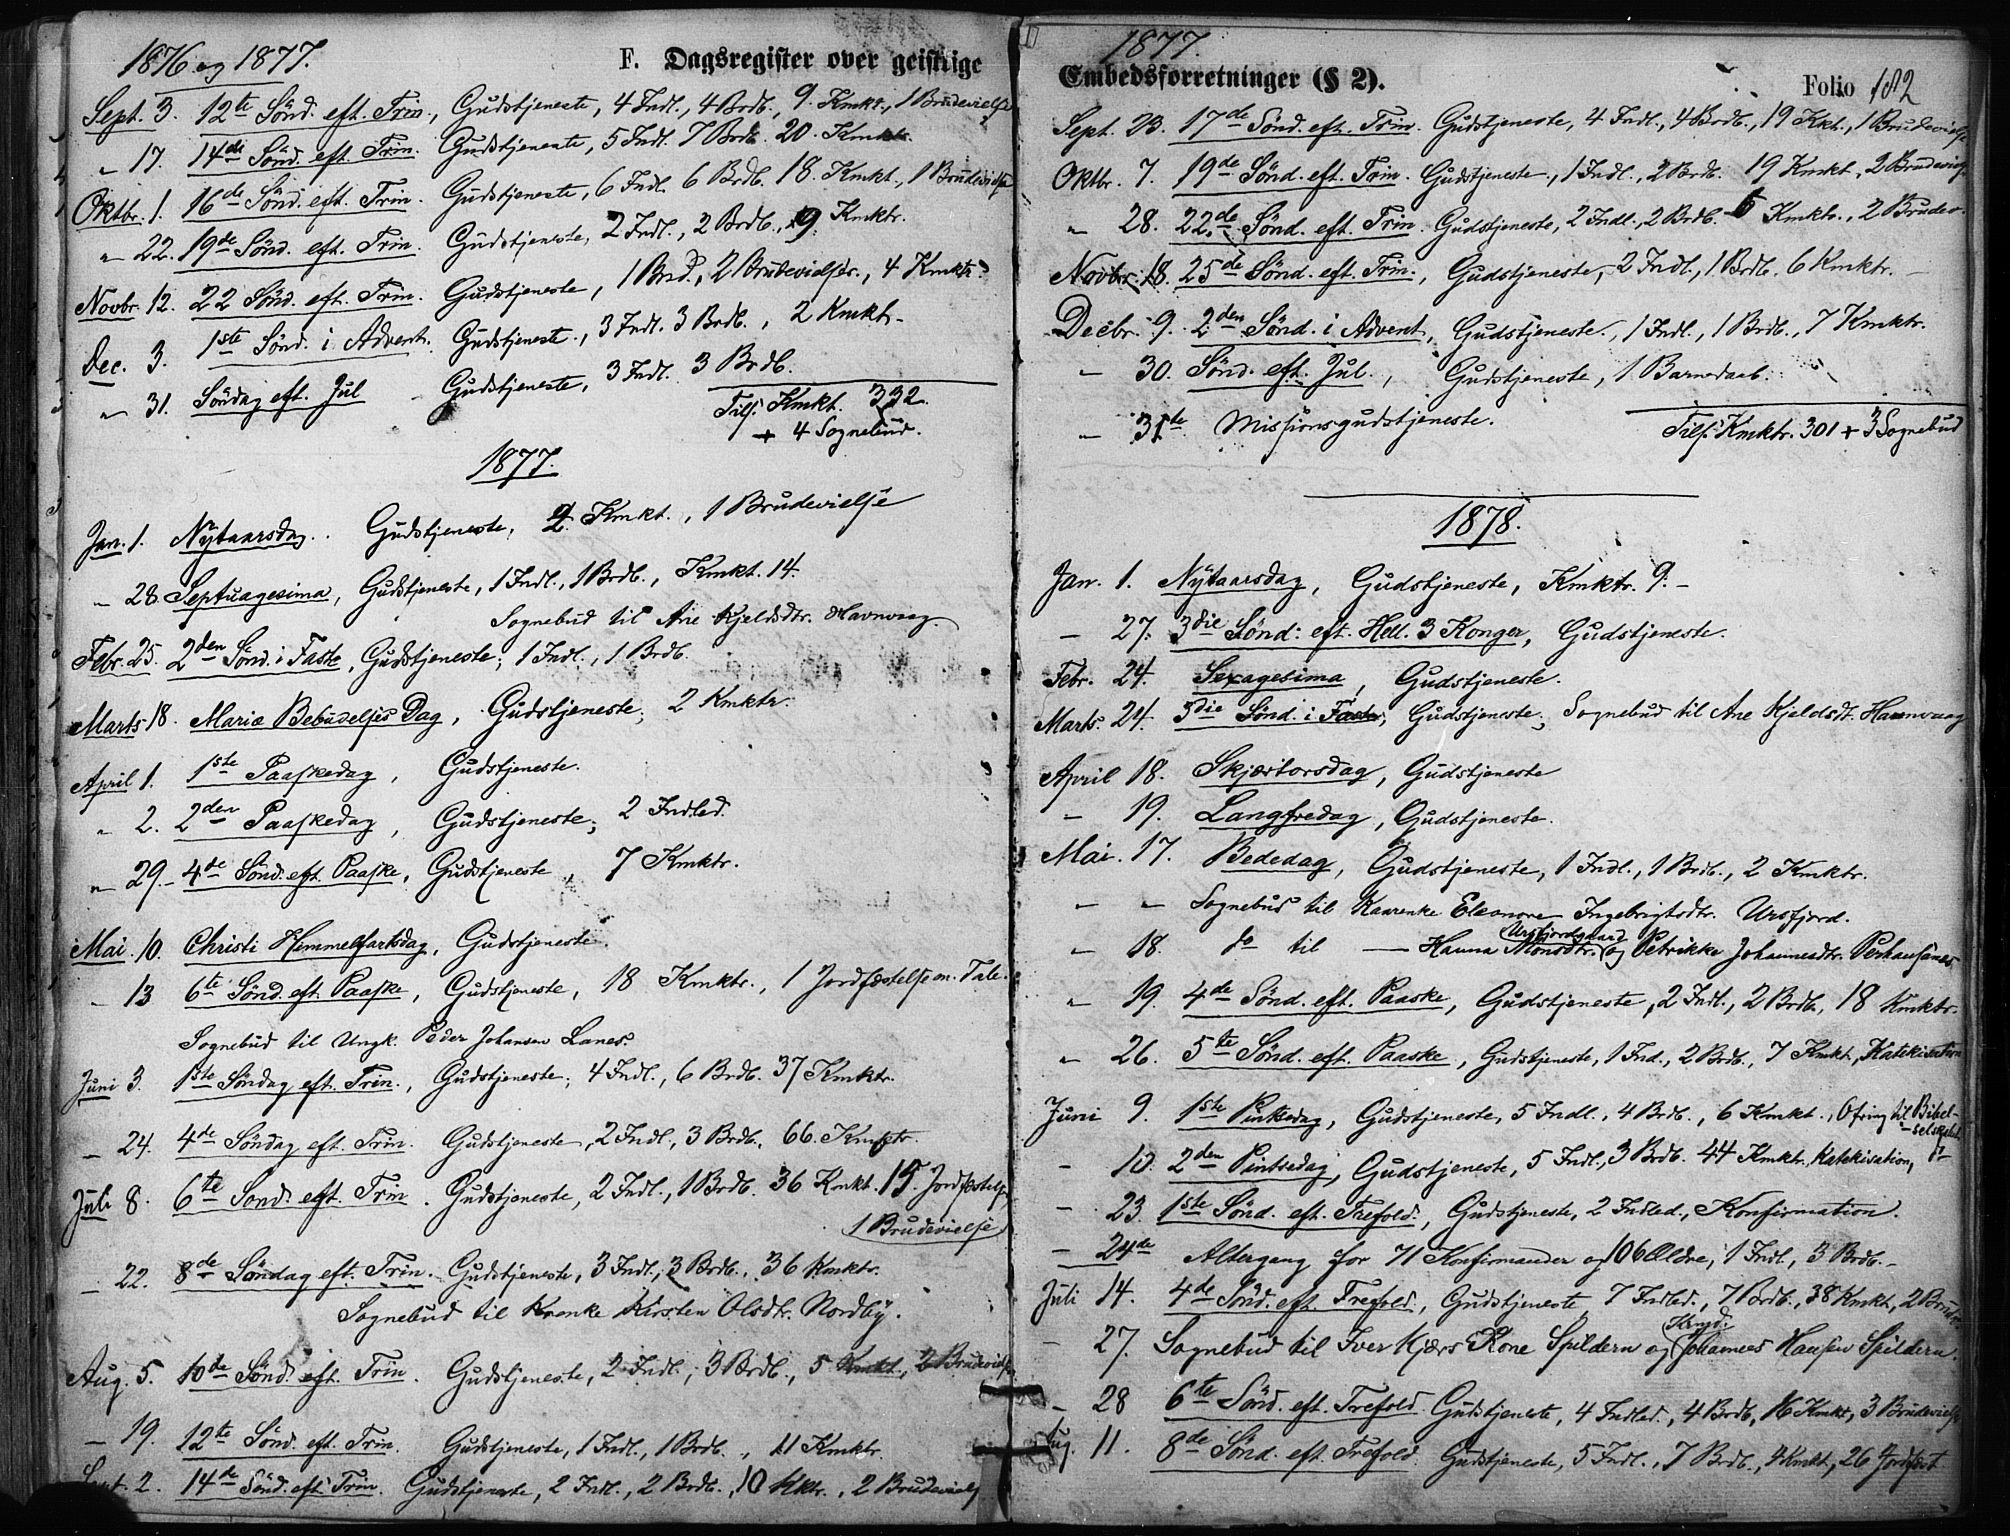 1876 og 1877.
F. Dagsregister over geistlige
Sept. 3. 12te Sönd. eft. Trin., Gudstjeneste, 4 Indl., 4 Brdb. 9. Kmkt., 1 Brudevielse
" 17. 14de Sönd. eft. Trin. Gudstjeneste, 5 Indl. 7 Brdb. 20. Kmktr.
Oktbr. 1. 16de Sönd. eft. Trin. Gudstjeneste, 6 Indl. 6 Brdb. 18. Kmkt., 1 Brudevielse
" 22. 19de Sönd. eft. Trin. Gudstjeneste, 2 Indl., 2 Brdb., 9. Kmktr.
Novbr. 12. 22 Sönd. eft. Trin. Gudstjeneste, 1 Brd., 2 Brudevielser., 4 Kmktr.
Dec. 3. 1ste Sönd. i Advent. Gudstjeneste., 3 Indl. 3 Brdb., 2 Kmktr.
" 31. Söndag eft. Jul Gudstjeneste, 3 Indl. 3 Brdb.
Tils. Kmkt. 332.
+ 4 Sognebud.
1877.
Jan. 1. Nytaarsdag.. Gudstjeneste, 2 Kmkt., 1 Brudevielse
" 28. Septuagesima, Gudstjeneste, 1 Indl., 1 Brdb., Kmkt. 14.
Sognebud til Ane Kjeldsdtr. Havnvaag.
Febr. 25. 2den Sönd. i Faste, Gudstjeneste; 1 Indl., 1 Brdb.
Marts 18. Mariæ Bebudelses Dag, Gudstjeneste; 2 Kmktr.
April 1. 1ste Paaskedag, Gudstjeneste.
" 2. 2den Paaskedag, Gudstjeneste; 2 Indled.
" 29. 4de Sönd. eft. Paaske, Gudstjeneste, 7 Kmktr.
Mai. 10. Christi Hemmelfartsdag, Gudstjeneste.
" 13 6te Sönd. eft. Paaske, Gudstjeneste, 18 Kmktr., 1 Jordfæstelse m. Tale.
Sognebud til Ungk. Peder Johansen Lanes.
Juni 3. 1ste Söndag eft. Trin., Gudstjeneste; 4 Indl., 6 Brdb. 37 Kmktr.
" 24. 4de Söndag eft. Trin. Gudstjeneste, 2 Indl., 3 Brdb. 66. Kmktr.
Juli 8. 6te Sönd. eft. Trin. Gudstjeneste, 2 Indl., 1 Brdb. 36 Kmkt. 15. Jordfæstelse,
1 Brudevielse
" 22. 8de Söndag eft. Trin. Gudstjeneste, 3 Indl., 3 Brdb., 36 Kmktr.
Sognebud til Krenke Kirsten Olsdtr. Nordby.
Aug. 5. 10de Sönd. eft. Trin. Gudstjeneste, 2 Indl., 3 Brdb., 5 Kmkt., 2 Brudevielse
" 19. 12te Sönd. eft. Trin. Gudstjeneste, 1 Indl., 1 Brdb., 11 Kmktr.
Sept. 2. 14de Sönd. eft. Trin. Gudstjeneste, 2 Indl., 2 Brdb., 10 Kktr., 2 Brudevielse
1877.
Embedsforretninger (§ 2).
Folio 182
Sept. 23. 17de Sönd. eft. Trin. Gudstjeneste, 4 Indl., 4 Brdb., 19 Kkt., 1 Brudevielse
Oktbr. 7. 19de Sönd. eft. Trin. Gudstjeneste, 1 Indl., 2 Brdb. 19 Kmkt, 2 Brudeviels.
" 28. 22de Sönd. eft. Trin. Gudstjeneste, 2 Indl., 2 Brdb. 5 Kmktr., 2 Brudev.
Novbr. 18. 25de Sönd. eft. Trin., Gudstjeneste, 2 Indl., 1 Brdb. 6 Kmktr.
Decbr. 9. 2den Sönd. i Advent, Gudstjeneste., 1 Indl., 1 Brdb., 7 Kmktr.
" 30. Sönd. eft. Jul., Gudstjeneste, 1 Barnedaab.
" 31te. Missionsgudstjeneste.
Tils. Kmktr. 301 + 3 Sognebud
1878.
Jan. 1. Nytaarsdag, Gudstjeneste, Kmktr. 9.
" 27. 3die Sönd. eft. Hell. 3 Konger, Gudstjeneste.
Febr. 24. Sexagesima, Gudstjeneste.
Marts. 24. 3die Sönd. i Faste; Gudstjeneste; Sognebud til Ane Kjeldsdt. Havnvaag
April 18. Skjærtorsdag, Gudstjeneste
" 19. Langfredag, Gudstjeneste.
Mai. 17. Bededag, Gudstjeneste, 1 Indl., 1 Brdb., 2 Kmktr.
" " Sognebud til Kaarenke Eleonore Ingebrigtsdtr. Ursfjord.
Ursfjordgaard
" 18. do til — Hanna Monsdtr. og Petrikke Johannesdtr. Perhansanes.
" 19. 4de Sönd. eft. Paaske, Gudstjeneste, 2 Indl., 2 Brdb., 18 Kmktr.
" 26. 5te Sönd. eft. Paaske, Gudstjeneste, 1 Ind., 2 Brdb., 7 Kmkt, Katekisation
Juni 9. 1ste Pintsedag, Gudstjeneste, 5 Indl., 4 Brdb., 6 Kmkt., Ofring til Bibel-
-selskabet
" 10. 2den Pintsedag, Gudstjeneste, 5 Indl., 3 Brdb. 44 Kmktr, Katekisation,
" 23. 1ste Sönd. eft. Trefold., Gudstjeneste, 2 Indled., Konfirmation.
" 24de Altergang for 71 Konfirmander og 106 Ældre, 1 Indl., 3 Brdb.
Juli 14. 4de Sönd. eft. Trefold., Gudstjeneste, 7 Indled., 7 Brdb., 38 Kmkt, 2 Brudev.
" 27. Sognebud til Iver Kjærs Kone Spildern og Johannes Hansen Spildern.
" 28 6te Sönd. eft. Trefold. Gudstjeneste, 4 Indled., 4 Brdb, 16 Kmkt, 3 Brudevielse
Aug. 11. 8de Sönd. eft. Trefold. Gudstjeneste, 5 Indl., 7 Brdb., 4 Kmkt, 26 Jordfæst